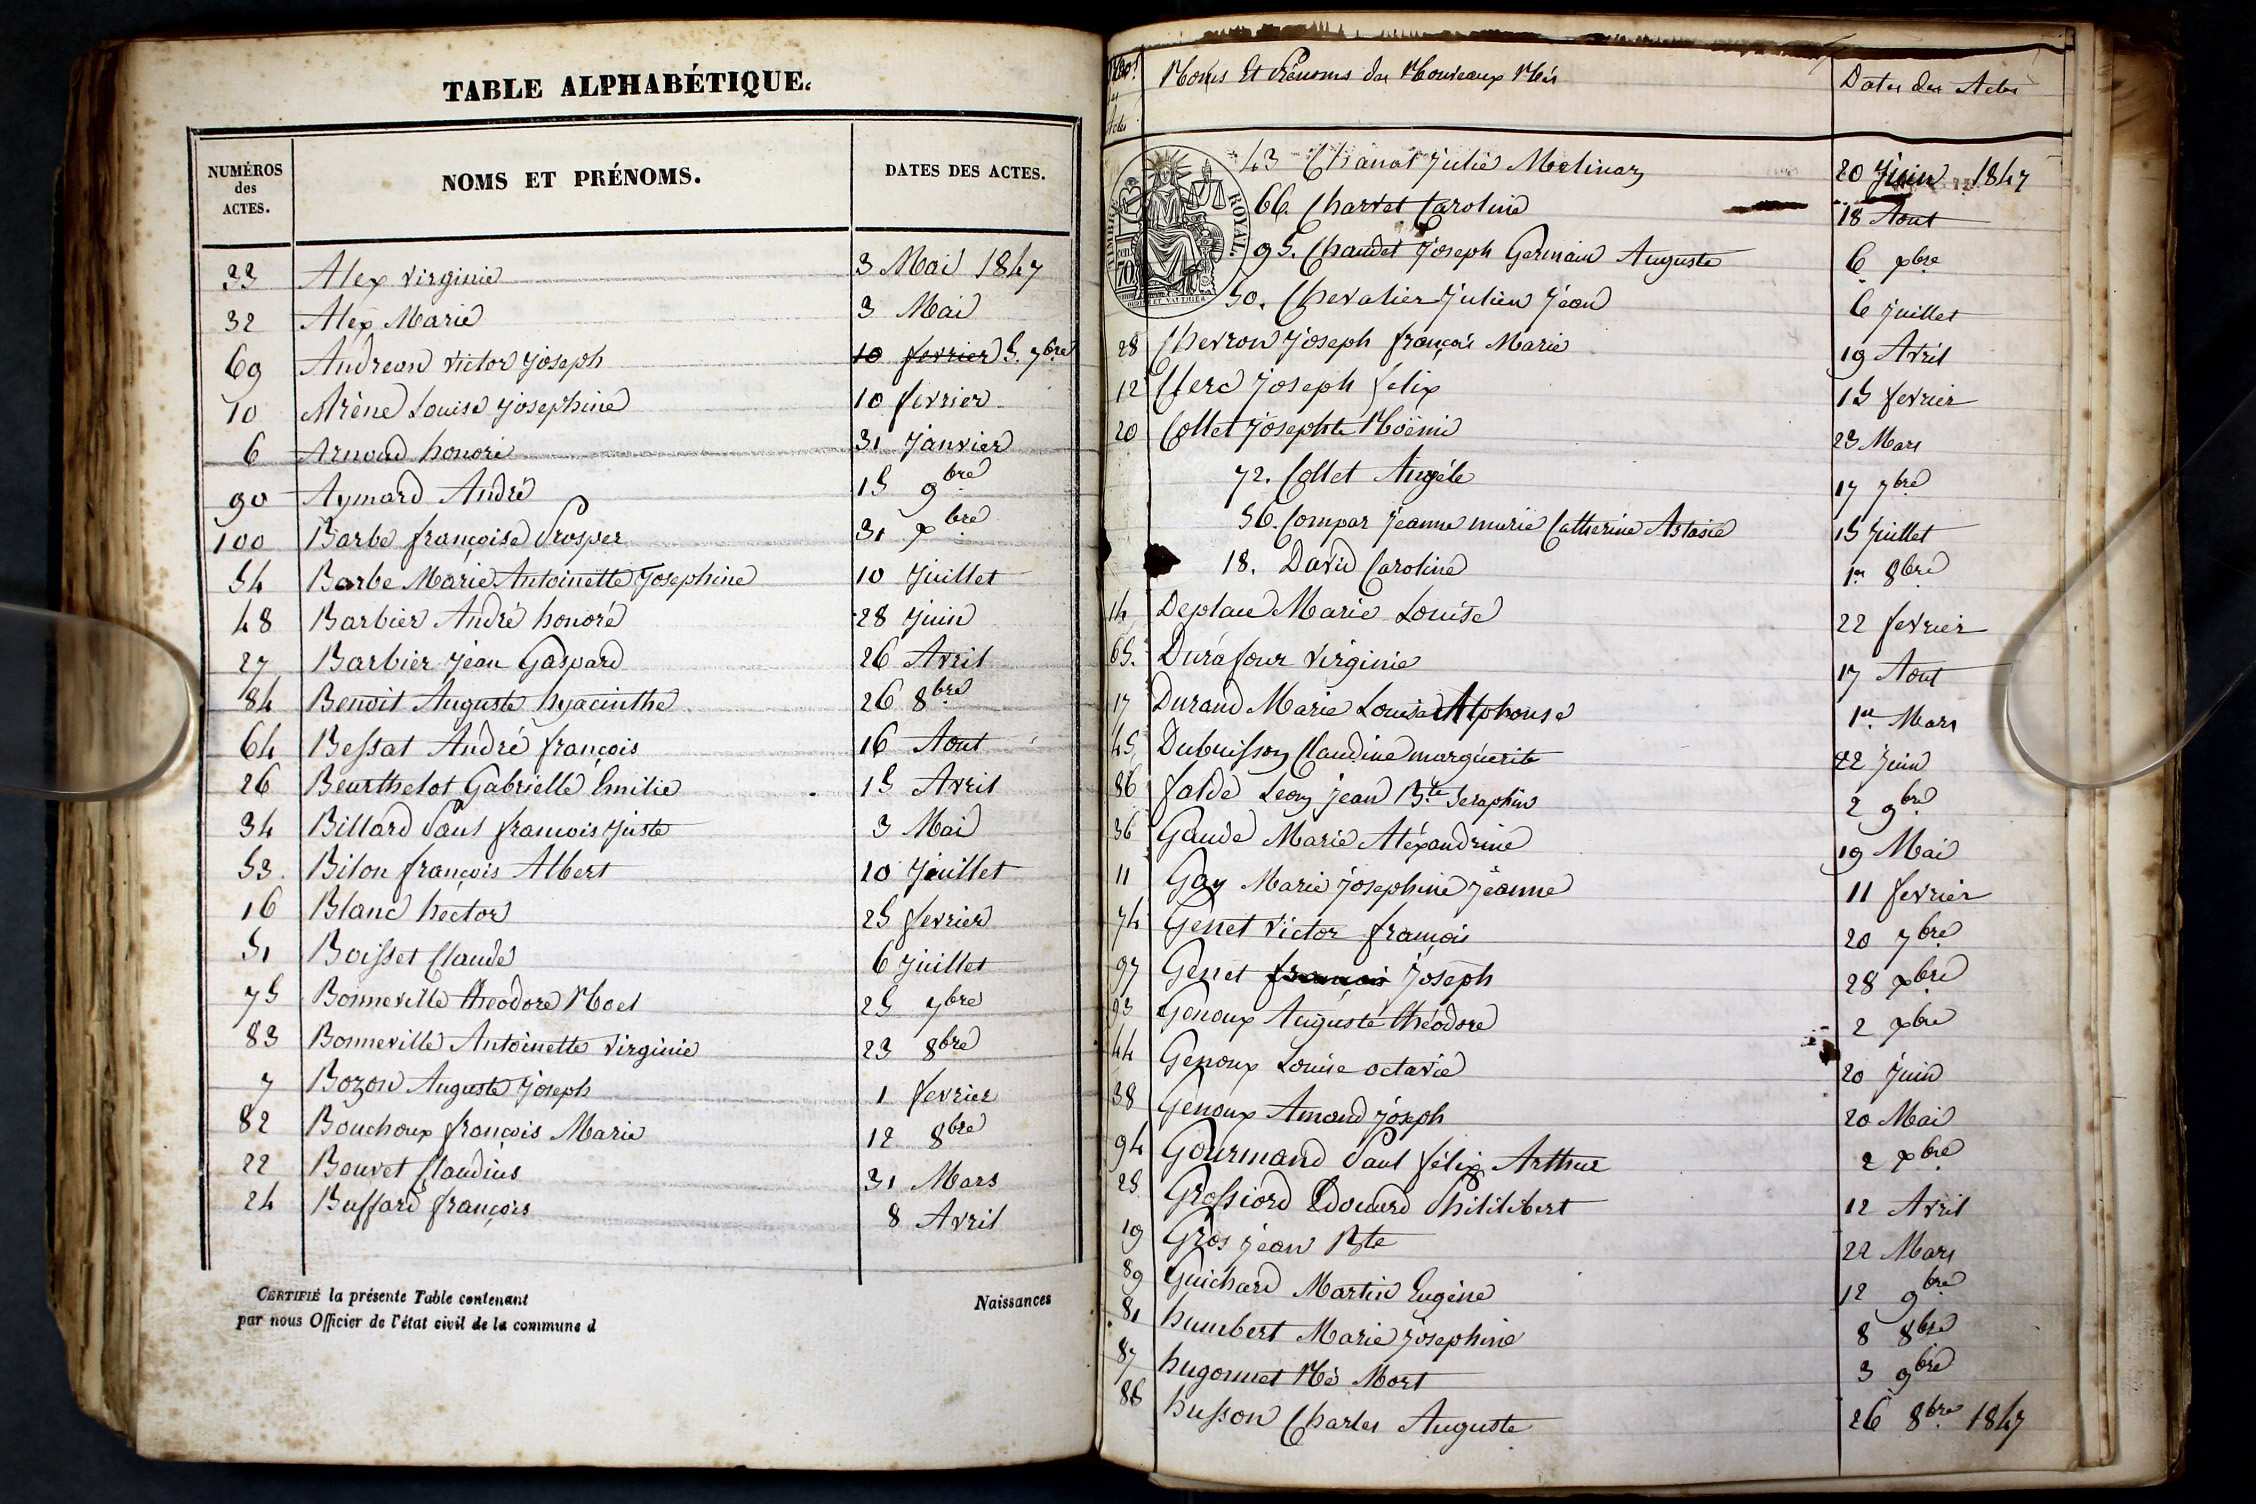 TABLE ALPHABÉTIQUE.
NUMÉROS des ACTES. NOMS ET PRÉNOMS. DATES DES ACTES.
33 Alex Virginie 3 Mai 1847
32 Alex Marie 3 Mai
69 Andrean Victor Joseph 10 fevrier 5. 7bre
10 Arène Louise Josephine 10 fevrier
6 Arnoud honoré 31 Janvier
90 Aymard André 15 9bre
100 Barbe françoise Prosper 31 xbre
54 Barbe Marie Antoinette Josephine 10 Juillet
48 Barbier André honoré 28 Juin
27 Barbier Jean Gaspard 26 Avril
84 Benoit Auguste hyacinthe 26 8bre
64 Bessat André françois 16 Aout
26 Beurthelot Gabrielle Emilie 15 Avril
34 Billard Paul francois Juste 3 Mai
53. Bilon françois Albert 10 Juillet
16 Blanc hector 25 fevrier
51 Boisset Claude 6 Juillet
75 Bonneville theodore Noel 25 7bre
83 Bonneville Antoinette Virginie 23 8bre
7 Bozon Auguste Joseph 1 fevrier
82 Bouchoux françois Marie 12 8bre
22 Bouvet Claudius 31 Mars
24 Buffard françois 8 Avril
CERTIFIÉ la présente Table contenant Naissances
par nous Officier de l'état civil de la commune d
Nos des Actes Noms Et Prénoms des Nouveaux Nés Dates des Actes
TIMBRE ROYAL
70
43 Chanat Julie Molinaz 20 Juin 1847
66. Charvet Caroline 18 Aout
95. Chaudet Joseph Germain Auguste 6 xbre
50. Chevalier Julien Jean 6 Juillet
28 Chevron Joseph françois Marie 19 Avril
12 Clerc Joseph felix 15 fevrier
20 Collet Josephte Noëmi 23 Mars
72. Collet Angéle 17 7bre
56. Compar Jeanne marie Catherine Astasie 15 Juillet
18. David Caroline 1er 8bre
14 Deplau Marie Louise 22 fevrier
65. Durafour Virginie 17 Aout
17 Durand Marie Louise Alphonse 1er Mars
45 Dubuisson Claudine marguerite 22 Juin
86 falde Leon Jean Bte Seraphin 2 9bre
36 Gaude Marie Aléxandrine 19 Mai
11 Gay Marie Josephine Jeanne 11 fevrier
74 Genet Victor françois 20 7bre
97 Genet françois Joseph 28 xbre
93 Genoux Auguste théodore 2 xbre
44 Genoux Louise octavie 20 Juin
38 Genoux Amand Joseph 20 Mai
94 Gourmand Paul félix Arthur 2 xbre
25 Grossiord Edouard Philibert 12 Avril
19 Gros Jean Bte 22 Mars
89 Guichard Martin Eugène 12 9bre
81 humbert Marie Josephine 8 8bre
87 hugonnet Né Mort 3 9bre
86 husson Charles Auguste 26 8bre 1847